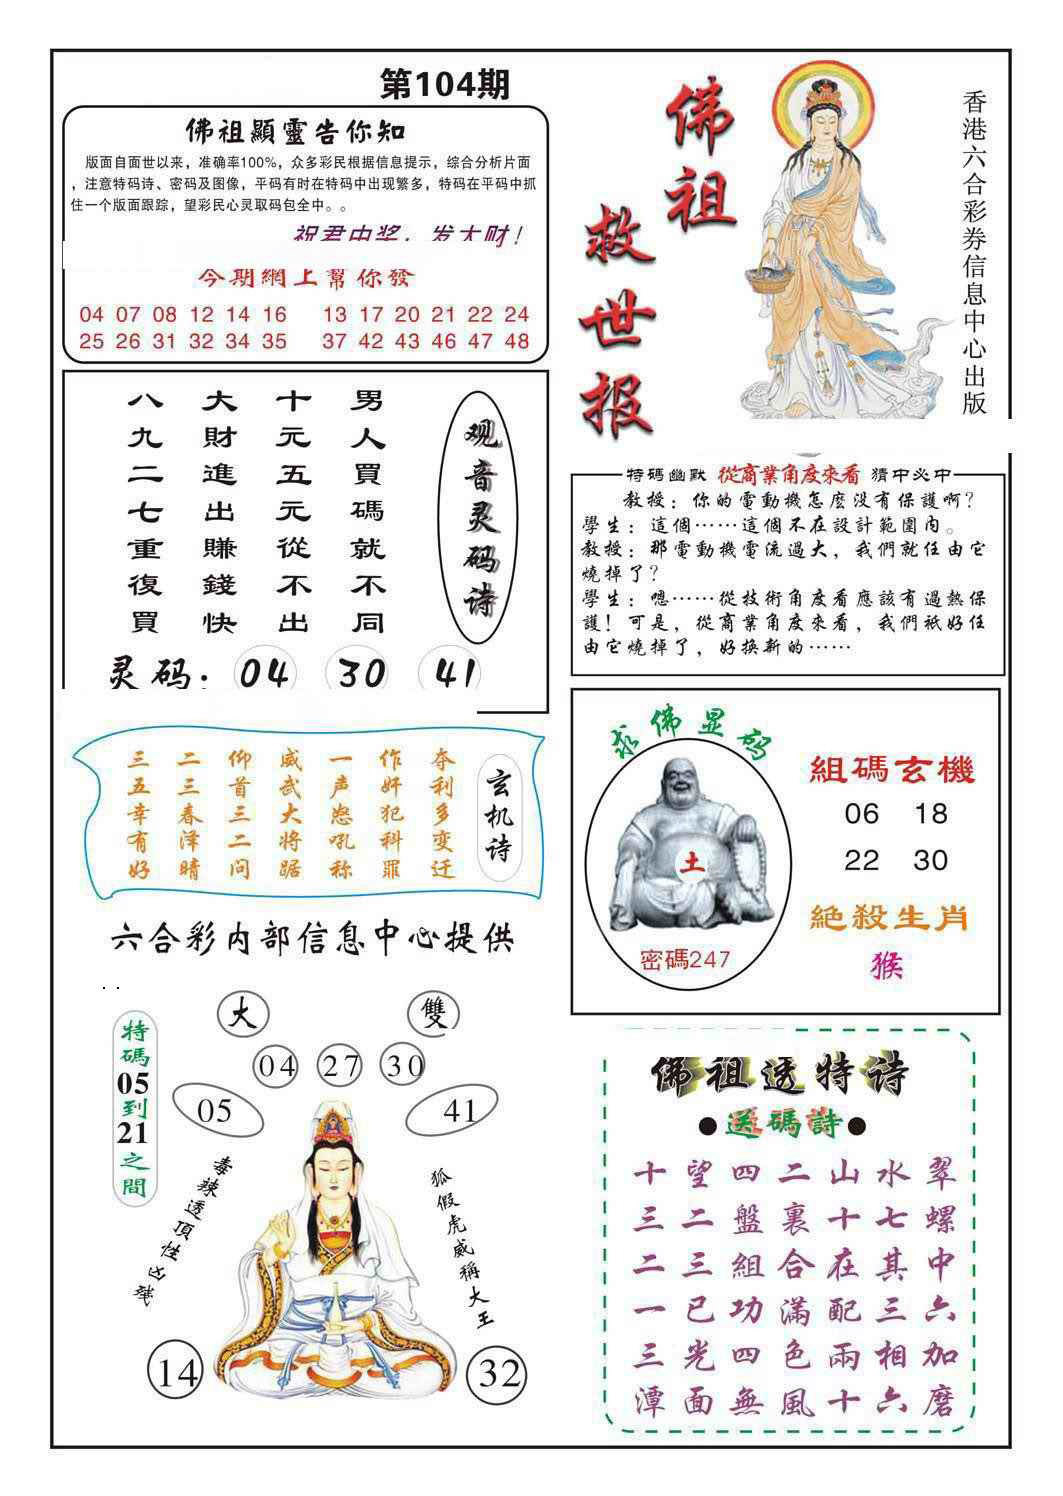 第104期
佛祖顯靈告你知
版面自面世以来，准确率100%，众多彩民根据信息提示，综合分析片面
，注意特码诗、密码及图像，平码有时在特码中出现繁多，特码在平码中抓
住一个版面跟踪，望彩民心灵取码包全中。。
祝君中奖，发大财！
今期網上幫你發
04 07 08 12 14 16 13 17 20 21 22 24
25 26 31 32 34 35 37 42 43 46 47 48
佛祖
救世报
香港六合彩券信息中心出版
观音灵码诗
男人買碼就不同
十元五元從不出
大財進出賺錢快
八九二七重復買
灵码：04 30 41
特碼幽默 從商業角度來看 猜中必中
教授：你的電動機怎麼没有保護啊？
學生：這個……這個不在設計範圍内。
教授：那電動機電流過大，我們就任由它
燒掉了？
學生：嗯……從技術角度看應該有過熱保
護！可是，從商業角度來看，我們衹好任
由它燒掉了，好换新的……
玄机诗
夺利多变迁
作奸犯科罪
一声怒吼称
威武大将踞
仰首三二问
二三春泽晴
三五幸有好
六合彩内部信息中心提供
求佛显码
土
密碼247
組碼玄機
06 18
22 30
絕殺生肖
猴
大 雙
04 27 30
05 41
特碼05到21之間
毒辣透頂性凶残
狐假虎威稱大王
14 32
佛祖透特诗
●送碼詩●
翠螺中六加磨
水七其三相六
山十在配兩十
二裏合滿色風
四盤組功四無
望二三已光面
十三二一三潭